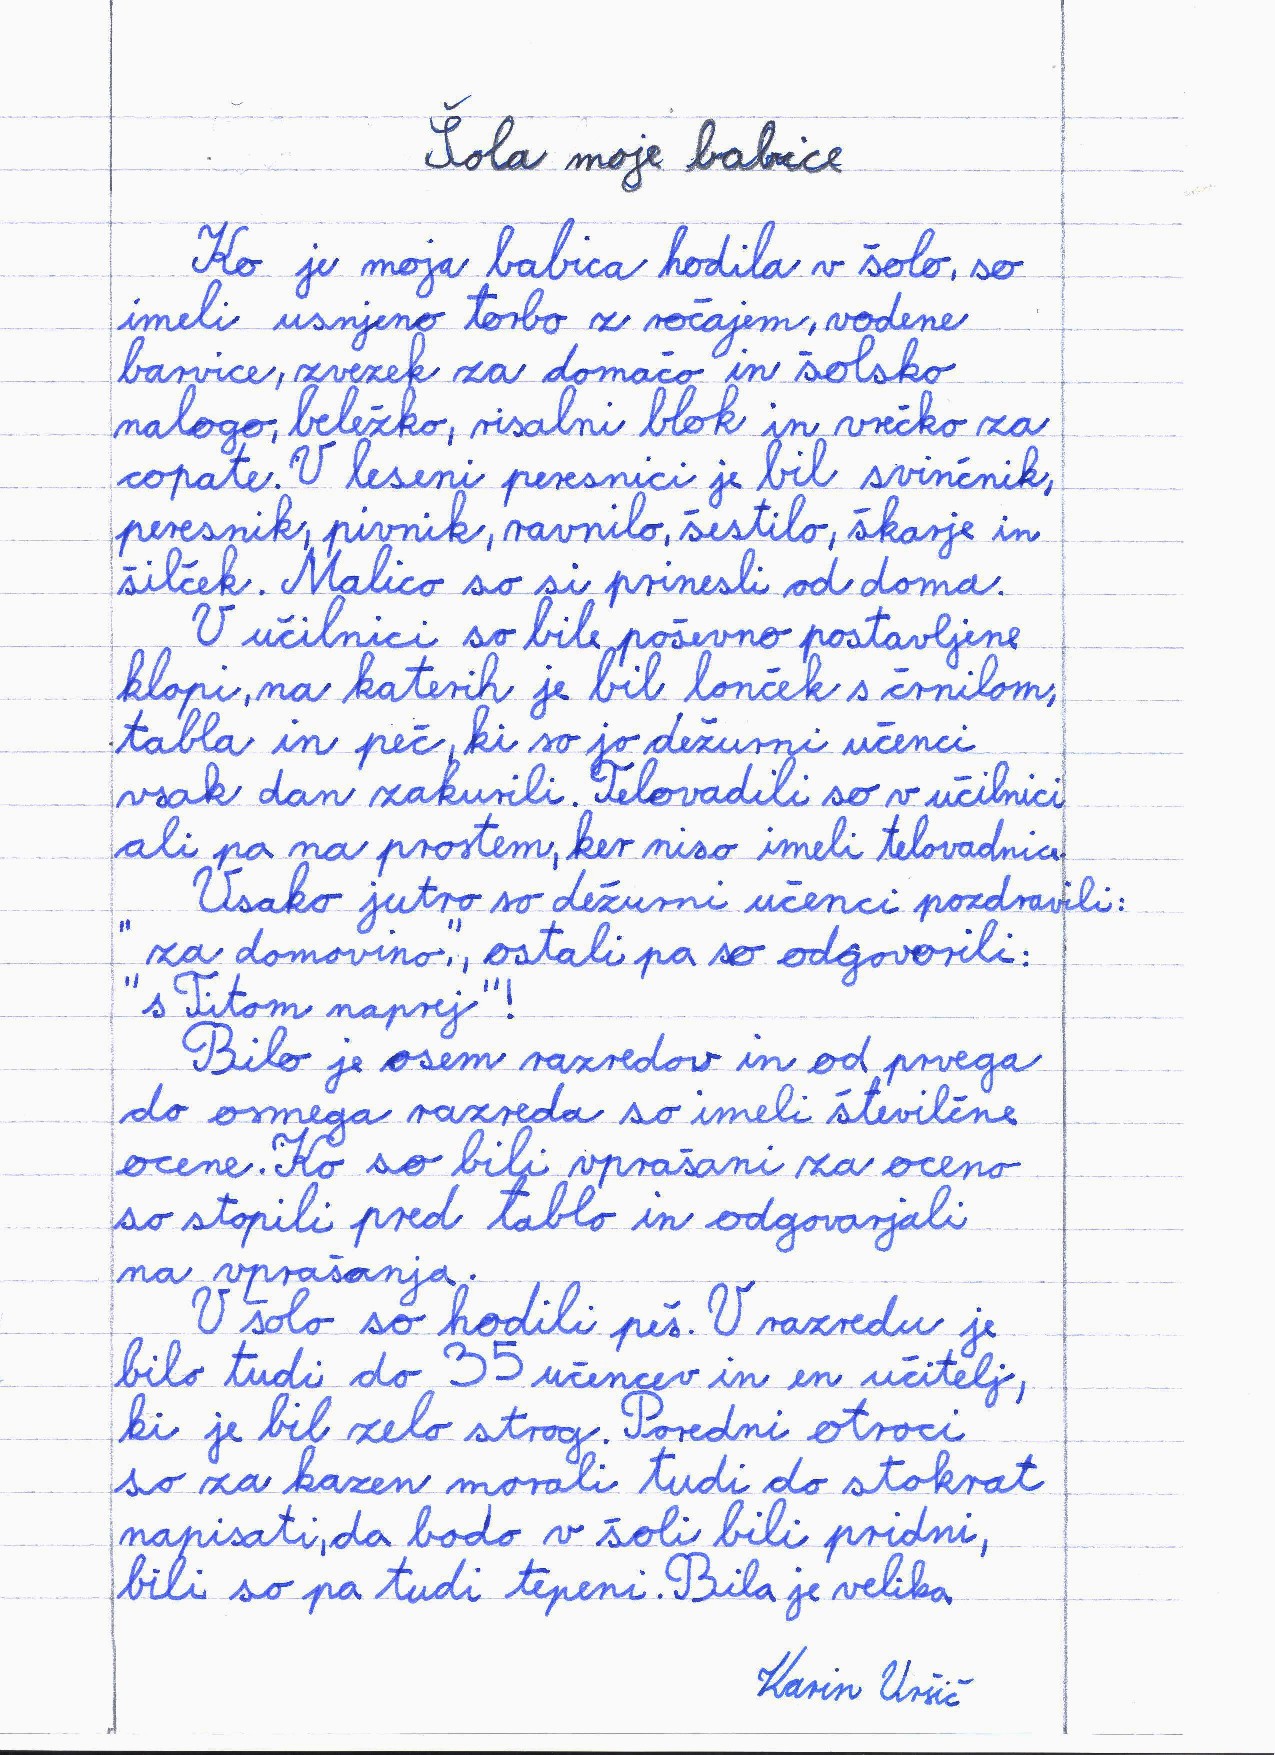 Šola moje babice
Ko je moja babica hodila v šolo, so
imeli usnjeno torbo z ročajem, vodene
barvice, zvezek za domačo in šolsko
nalogo, beležko, risalni blok in vrečko za
copate. V leseni peresnici je bil svinčnik,
peresnik, pivnik, ravnilo, šestilo, škarje in
šilček. Malico so si prinesli od doma.
V učilnici so bile poševno postavljene
klopi, na katerih je bil lonček s črnilom,
tabla in peč, ki so jo dežurni učenci
vsak dan zakurili. Telovadili so v učilnici
ali pa na prostem, ker niso imeli telovadnice.
Vsako jutro so dežurni učenci pozdravili:
"za domovino", ostali pa so odgovorili:
"s Titom naprej"!
Bilo je osem razredov in od prvega
do osmega razreda so imeli številčne
ocene. Ko so bili vprašani za oceno
so stopili pred tablo in odgovarjali
na vprašanja.
V šolo so hodili peš. V razredu je
bilo tudi do 35 učencev in en učitelj,
ki je bil zelo strog. Poredni otroci
so za kazen morali tudi do stokrat
napisati, da bodo v šoli bili pridni,
bili so pa tudi tepeni. Bila je velika
Karin Uršič